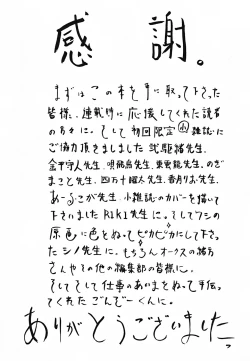 感謝。
まずはこの本を手に取って下さった
皆様、連載時に応援してくれた読者
の方々に。そして初回限定小雑誌に
ご協力頂きましました
先生、
金平守人先生、明飛鳥先生、東雲龍先生、のぎ
まこと先生、四万十曜太先生、香月りお先生、
あーるこが先生、小雑誌のカバーを描いて
下さいました RIKI先生に。そしてワシの
原画に色をぬってピカピカにして下さっ
たシノ先生に。もちろんオークスの緒方
さんやその他の編集部の皆様に。
そしてそして仕事のあいまをぬって手伝っ
てくれたごんでーくんに。
ありがとうございました